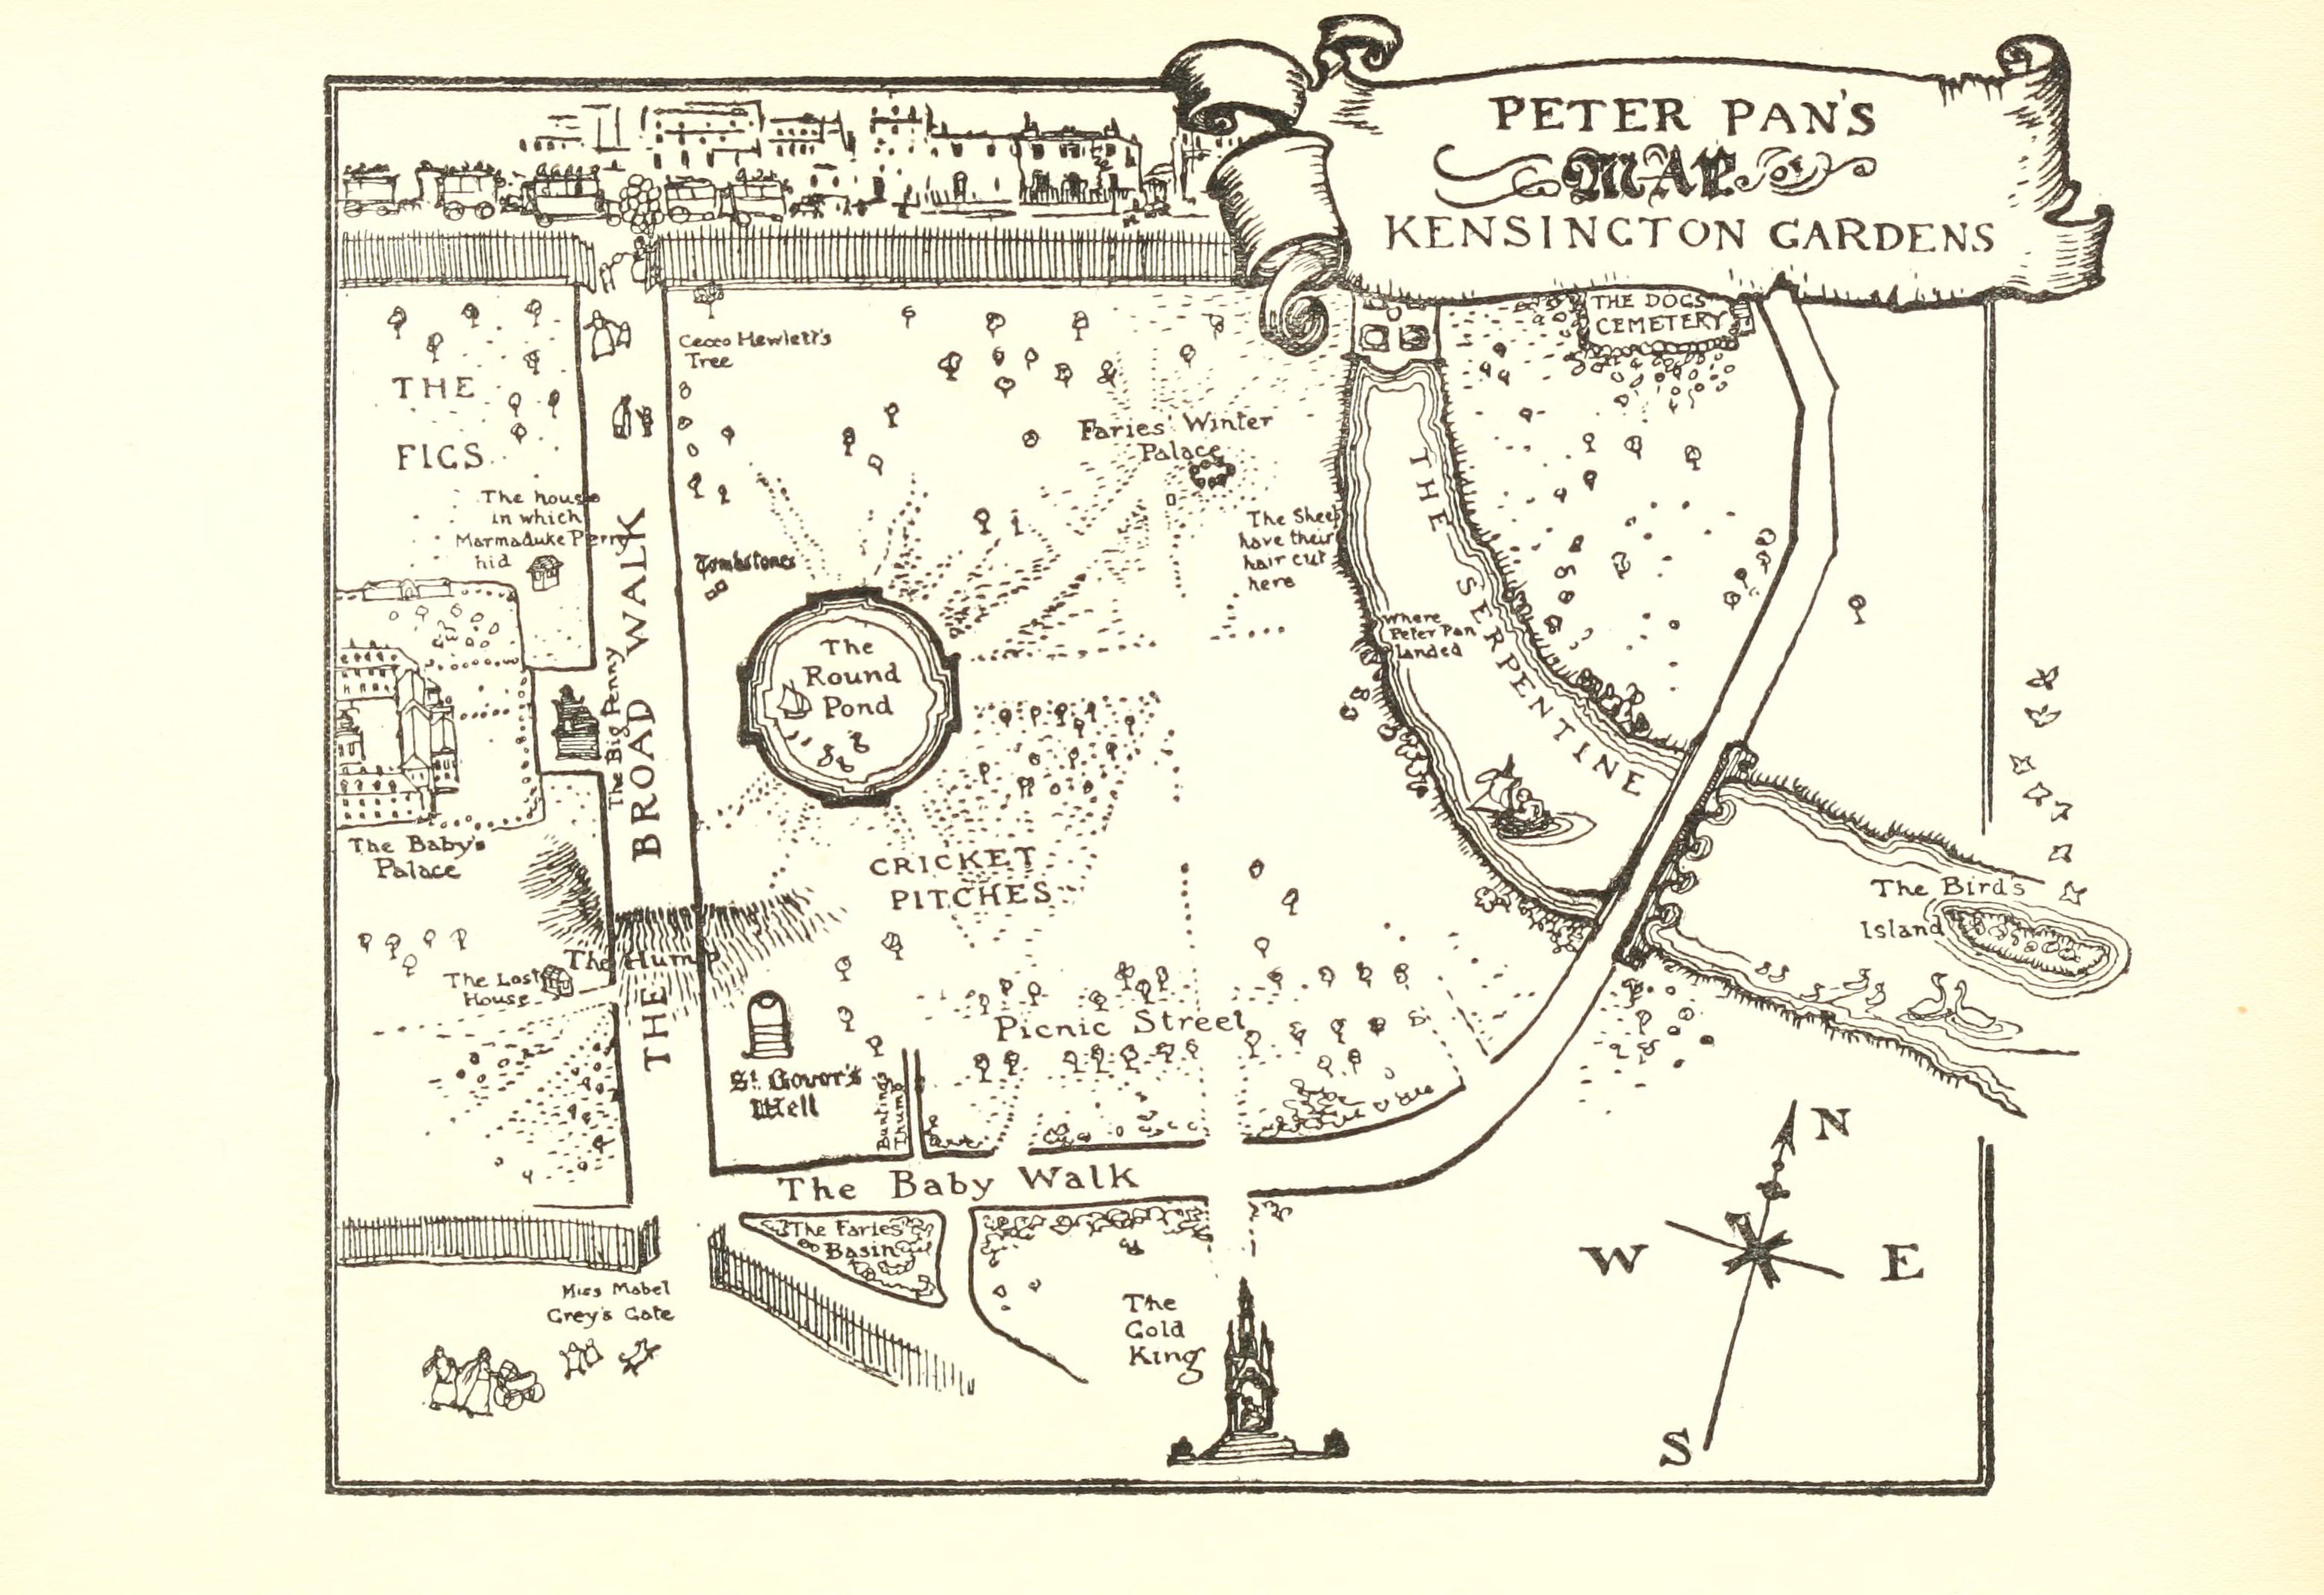 PETER PAN'S
MAP OF
KENSINGTON GARDENS
THE DOGS'
CEMETERY
Cecco Hewlett's
Tree
THE
FIGS
Faries' Winter
Palace
The house
in which
Marmaduke Perry
hid
The Sheep
have their
hair cut
here
Tombstones
THE SERPENTINE
where
Peter Pan
landed
The
Round
Pond
The Big Penny
THE BROAD WALK
The Baby's
Palace
CRICKET
PITCHES
The Bird's
Island
The Hump
The Lost
House
Picnic Street
St. Govor's
Well
Buntings
Thumb
The Baby Walk
The Faries'
Basin
Miss Mabel
Grey's Gate
The
Gold
King
N
W E
S